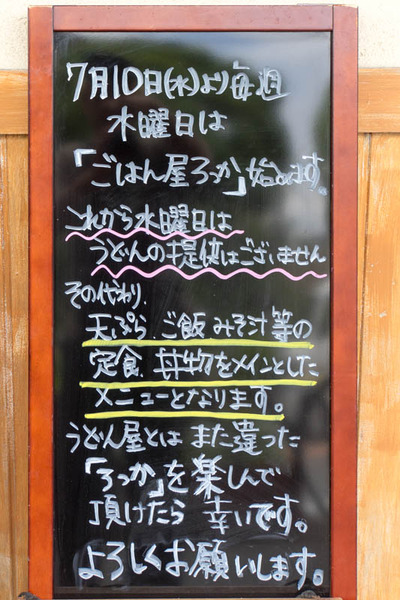 7月10日(水)より毎週
水曜日は
「ごはん屋ろっか」始めます。
これから水曜日は
うどんの提供はございません
その代わり、
天ぷら、ご飯 みそ汁等の
定食、丼物をメインとした
メニューとなります。
うどん屋とは また違った
「ろっか」を楽しんで
頂けたら 幸いです。
よろしくお願いします。